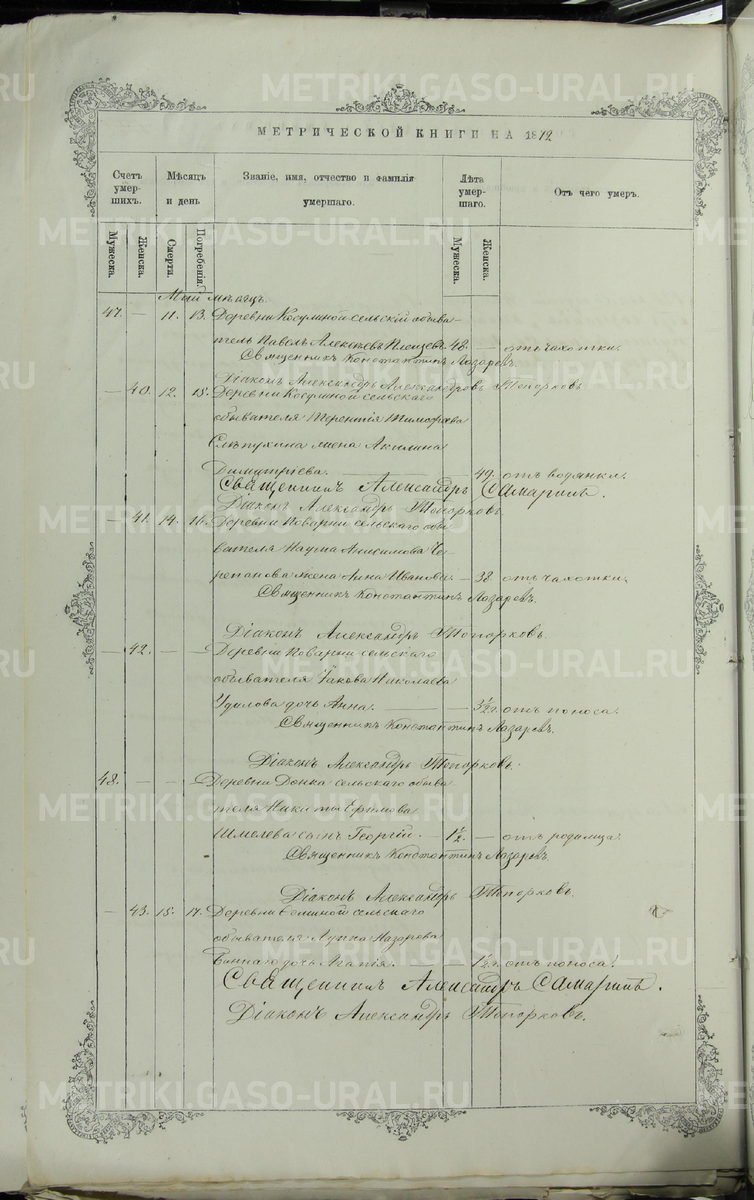 МЕТРИЧЕСКОЙ КНИГИ НА 1872
Счетъ умер- шихъ. Мѣсяцъ и день Званіе, имя, отчество и фамилія умершаго. Лѣта умер- шаго. Отъ чего умеръ.
Мужеска. Женска. Смерти. Погребенія. Мужеска. Женска.
Май мѣсяцъ.
47. — 11. 13. Деревни Косулиной сельскій обыва-
тель Павелъ Алексѣевъ 48. — отъ чахотки.
Священникъ Константинъ Лазаревъ.
Діаконъ Александръ Александровъ Топорковъ
— 40. 12. 15. Деревни Косулиной сельскаго
обывателя Терентія Тимофѣева
Слѣпухина жена Акилина
Димитріева. — 49. отъ водянки.
Священникъ Александръ Самаринъ.
Діаконъ Александръ Топорковъ
— 41. 14. 16. Деревни Поварни сельскаго обы-
вателя Наума Анисимова Че-
репанова жена Анна Иванова. — 38. отъ чахотки.
Священникъ Константинъ Лазаревъ.
Діаконъ Александръ Топорковъ.
— 42. — — Деревни Поварни сельскаго
обывателя Іакова Николаева
Удилова дочь Анна. — 3½ г. отъ поноса.
Священникъ Константинъ Лазаревъ.
Діаконъ Александръ Топорковъ.
48. — — — Деревни сельскаго обыва
теля Никиты
Шмелева сынъ Георгій. — 1½. — отъ родимца.
Священникъ Константинъ Лазаревъ.
Діаконъ Александръ Топорковъ.
— 43. 15. 17. Деревни сельскаго
обывателя Луппа Назарова
дочь Агапія. — 1½ г. отъ поноса.
Священникъ Александръ Самаринъ.
Діаконъ Александръ Топорковъ.
METRIKI.GASO-URAL.RU